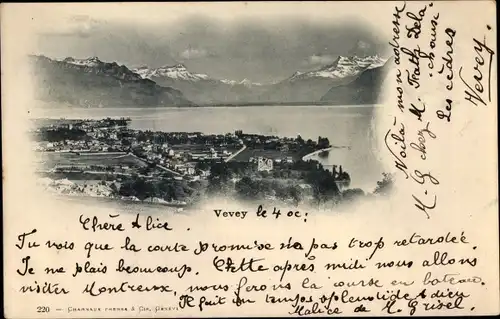 Vevey le 4 oc:
Chère Alice.
Tu vois que la carte promise n'a pas trop retardée.
Je me plais beaucoup. Cette après midi nous allons
visiter Montreux, nous ferons la course en bateau.
Il fait un temps splendide Adieu
Malice de M. Grisel.
220 - CHARNAUX FRÈRES & Cie, GENÈVE
Voilà mon adresse
M. G chez M. Fath
chaus
Les cèdres
Vevey